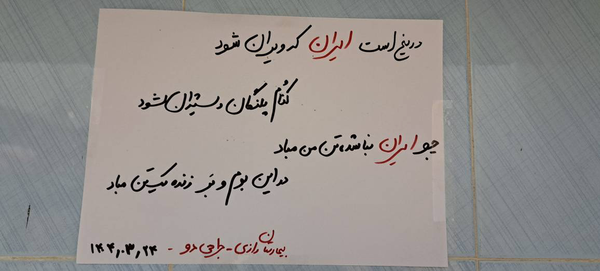 دریغ است ایران که ویران شود
کُنام پلنگان و شیران شود
چو ایران نباشد تن من مباد
در این بوم و بر زنده یک تن مباد
بیمارستان رازی - جراحی دو - ۱۴۰۴،۰۳،۲۴